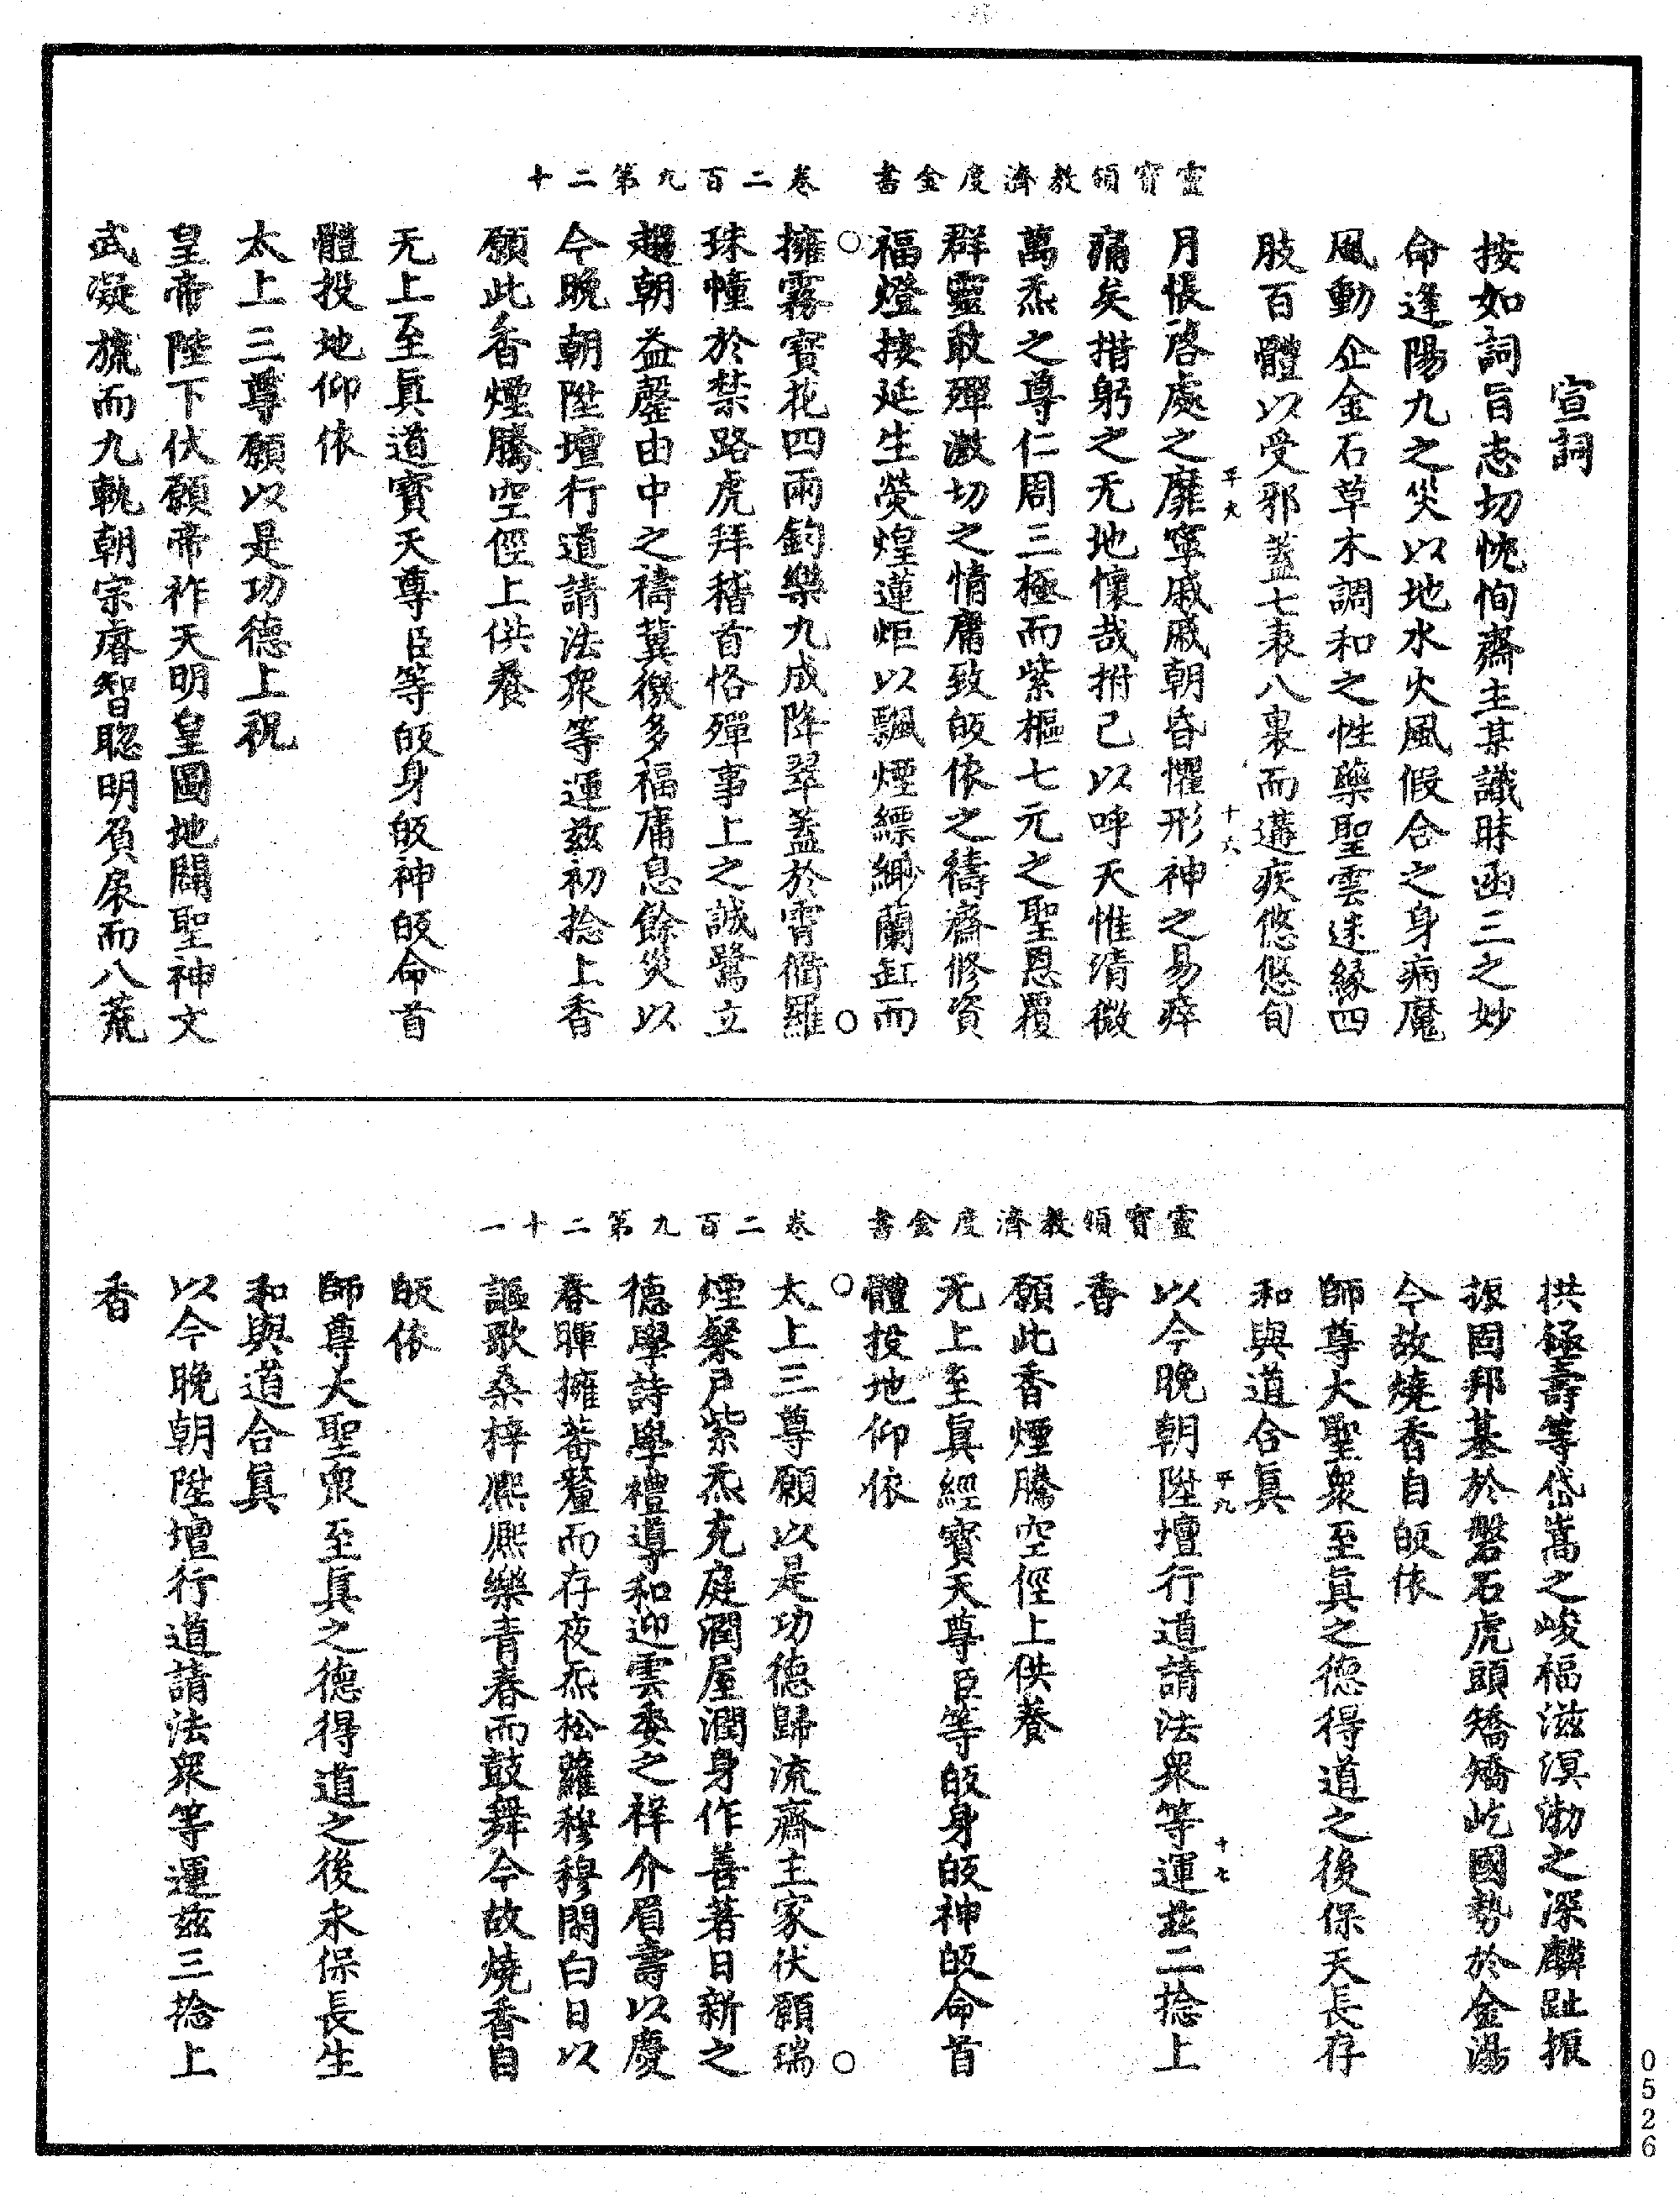 靈寶領教濟度金書　卷二百九第二十
宣詞
按如詞旨志切忱恂齋主某識昧函三之妙
命逢陽九之災以地水火風假合之身病魔
風動企金石草木調和之性藥聖雲迷緣四
肢百體以受邪蓋七表八裏而遘疾悠悠旬
月悵啓處之靡寧戚戚朝昏懼形神之易瘁
平六
十六
痛矣措躬之无地懷哉拊己以呼天惟清微
萬炁之尊仁周三極而紫樞七元之聖恩覆
群靈敢殫激切之情庸致皈依之禱齋修資
福燈接延生熒煌蓮炬以飄煙縹緲蘭缸而
擁霧寶花四雨鈞樂九成降翠蓋於霄衢羅
珠幢於禁路虎拜稽首恪殫事上之誠鷺立
趨朝益罄由中之禱冀徼多福庸息餘災以
今晚朝陞壇行道請法眾等運茲初捻上香
願此香煙騰空徑上供養
无上至真道寶天尊臣等皈身皈神皈命首
體投地仰依
太上三尊願以是功德上祝
皇帝陛下伏願帝祚天明皇圖地闢聖神文
武凝旒而九軌朝宗睿智聰明負扆而八荒
靈寶領教濟度金書　卷二百九第二十一
拱極壽等岱嵩之峻福滋溟渤之深麟趾振
振固邦基於磐石虎頭矯矯屹國勢於金湯
今故燒香自皈依
師尊大聖眾至真之德得道之後保天長存
和與道合真
平九
十七
以今晚朝陞壇行道請法眾等運茲二捻上
香
願此香煙騰空徑上供養
无上至真經寶天尊臣等皈身皈神皈命首
體投地仰依
太上三尊願以是功德歸流齋主家伏願瑞
煙粲戶紫炁充庭潤屋潤身作善著日新之
德學詩學禮導和迎雲委之祥介眉壽以慶
春暉擁蕃釐而存夜炁松蘿穆穆閱白日以
謳歌桑梓熙熙樂青春而鼓舞今故燒香自
皈依
師尊大聖眾至真之德得道之後永保長生
和與道合真
以今晚朝陞壇行道請法眾等運茲三捻上
香
0526